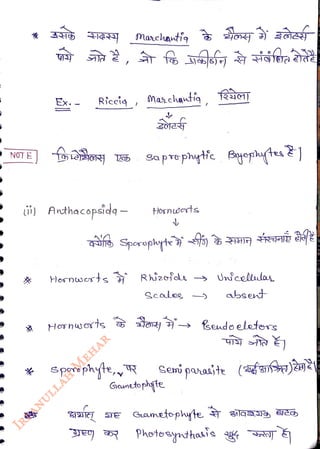 * इसके सदस्य Marchantia के थैलस में इलेटर्स
पाये जाते है, जो कि प्रकीर्णन से संबंधित होते है
Ex.- Riccia, Marchantia, रियेला
↓
इलेटर्स
NOTE क्रिप्टोथैलस एक saprophytic Bryophytes है।
(ii) Anthocopsida - Hornworts
↓
क्योंकि Sporophyte में सींग के समान संरचनाएँ होती है
* Hornworts में Rhizoids → Unicellular
Scales → absent
* Hornworts के थैलस में → Pseudoeletors
पाये जाते है।
* Sporophyte, पर Semiparasite (अर्द्ध आश्रित) होता है।
Gametophyte
अर्थात् यह Gametophyte से आवश्यक घटक
ग्रहण कर Photosynthasis खुद करता है।
IRFANULLAH MEHAR